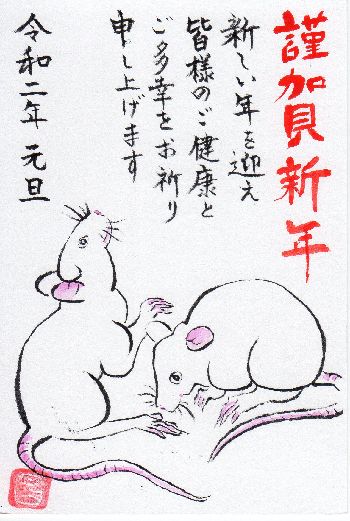 謹加貝新年
新しい年を迎え
皆様のご健康と
ご多幸をお祈り
申し上げます
令和二年 元旦